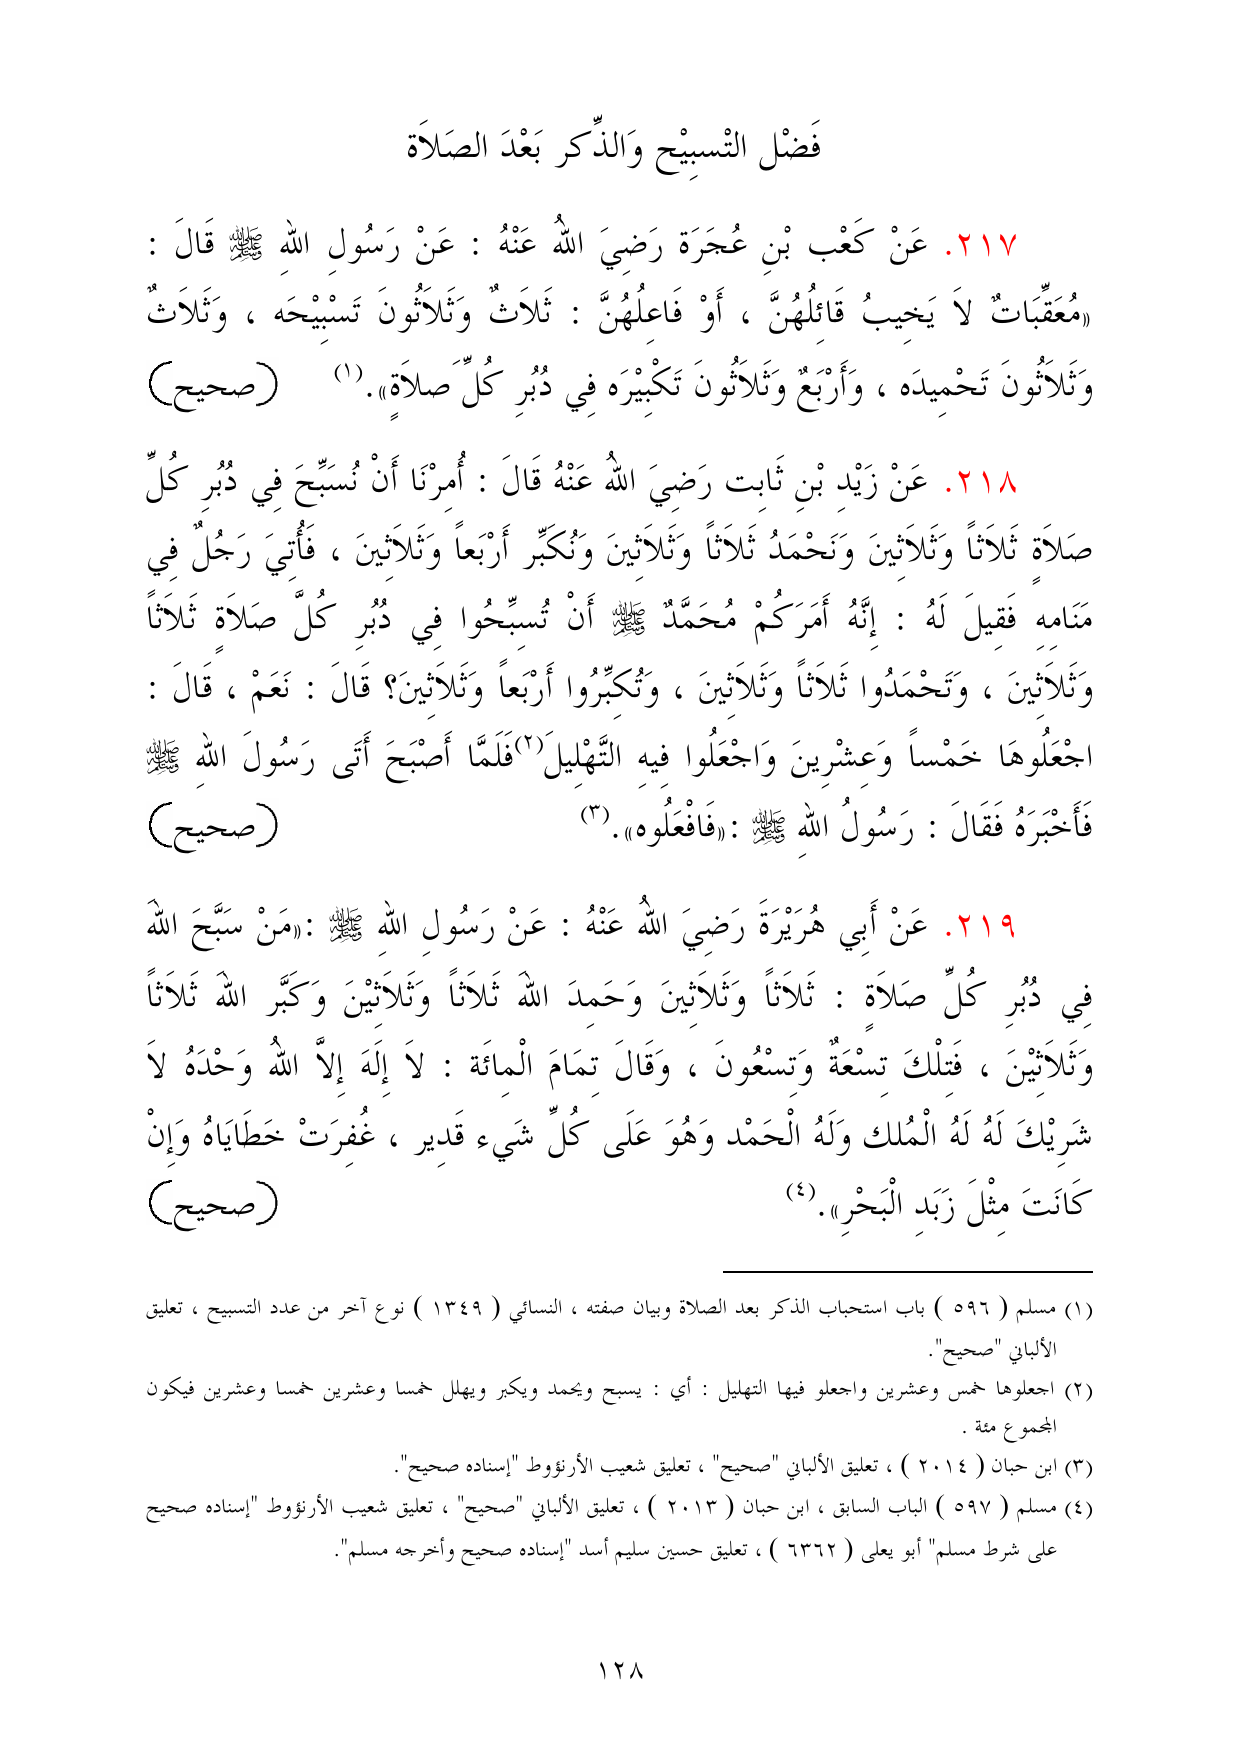 فَضْل التْسبِيْح وَالذِّكر بَعْدَ الصَلاَة
٢١٧. عَنْ كَعْب بْنِ عُجَرَة رَضِيَ اللهُ عَنْهُ : عَنْ رَسُولِ اللهِ ﷺ قَالَ :
«مُعَقِّبَاتٌ لاَ يَخِيبُ قَائِلُهُنَّ ، أَوْ فَاعِلُهُنَّ : ثَلاَثٌ وَثَلاَثُونَ تَسْبِيْحَه ، وَثَلاَثٌ
وَثَلاَثُونَ تَحْمِيدَه ، وَأَرْبَعٌ وَثَلاَثُونَ تَكْبِيْرَه فِي دُبُرِ كُلِّ صَلاَةٍ».(١) (صحيح)
٢١٨. عَنْ زَيْدِ بْنِ ثَابِت رَضِيَ اللهُ عَنْهُ قَالَ : أُمِرْنَا أَنْ نُسَبِّحَ فِي دُبُرِ كُلِّ
صَلاَةٍ ثَلاَثاً وَثَلاَثِينَ وَنَحْمَدُ ثَلاَثاً وَثَلاَثِينَ وَنُكَبِّر أَرْبَعاً وَثَلاَثِينَ ، فَأُتِيَ رَجُلٌ فِي
مَنَامِهِ فَقِيلَ لَهُ : إِنَّهُ أَمَرَكُمْ مُحَمَّدٌ ﷺ أَنْ تُسبِّحُوا فِي دُبُرِ كُلَّ صَلاَةٍ ثَلاَثاً
وَثَلاَثِينَ ، وَتَحْمَدُوا ثَلاَثاً وَثَلاَثِينَ ، وَتُكبِّرُوا أَرْبَعاً وَثَلاَثِينَ؟ قَالَ : نَعَمْ ، قَالَ :
اجْعَلُوهَا خَمْساً وَعِشْرِينَ وَاجْعَلُوا فِيهِ التَّهْلِيلَ(٢)فَلَمَّا أَصْبَحَ أَتَى رَسُولَ اللهِ ﷺ
فَأَخْبَرَهُ فَقَالَ : رَسُولُ اللهِ ﷺ :«فَافْعَلُوه».(٣) (صحيح)
٢١٩. عَنْ أَبِي هُرَيْرَةَ رَضِيَ اللهُ عَنْهُ : عَنْ رَسُولِ اللهِ ﷺ :«مَنْ سَبَّحَ اللهَ
فِي دُبُرِ كُلِّ صَلاَةٍ : ثَلاَثاً وَثَلاَثِينَ وَحَمِدَ اللهَ ثَلاَثاً وَثَلاَثِيْنَ وَكَبَّر اللهَ ثَلاَثاً
وَثَلاَثِيْنَ ، فَتِلْكَ تِسْعَةٌ وَتِسْعُونَ ، وَقَالَ تِمَامَ الْمِائَة : لاَ إِلَهَ إِلاَّ اللهُ وَحْدَهُ لاَ
شَرِيْكَ لَهُ لَهُ الْمُلك وَلَهُ الْحَمْد وَهُوَ عَلَى كُلِّ شَيء قَدِير ، غُفِرَتْ خَطَايَاهُ وَإِنْ
كَانَتَ مِثْلَ زَبَدِ الْبَحْرِ».(٤) (صحيح)
(١) مسلم ( ٥٩٦ ) باب استحباب الذكر بعد الصلاة وبيان صفته ، النسائي ( ١٣٤٩ ) نوع آخر من عدد التسبيح ، تعليق
الألباني "صحيح".
(٢) اجعلوها خمس وعشرين واجعلو فيها التهليل : أي : يسبح ويحمد ويكبر ويهلل خمسا وعشرين خمسا وعشرين فيكون
المجموع مئة .
(٣) ابن حبان ( ٢٠١٤ ) ، تعليق الألباني "صحيح" ، تعليق شعيب الأرنؤوط "إسناده صحيح".
(٤) مسلم ( ٥٩٧ ) الباب السابق ، ابن حبان ( ٢٠١٣ ) ، تعليق الألباني "صحيح" ، تعليق شعيب الأرنؤوط "إسناده صحيح
على شرط مسلم" أبو يعلى ( ٦٣٦٢ ) ، تعليق حسين سليم أسد "إسناده صحيح وأخرجه مسلم".
١٢٨